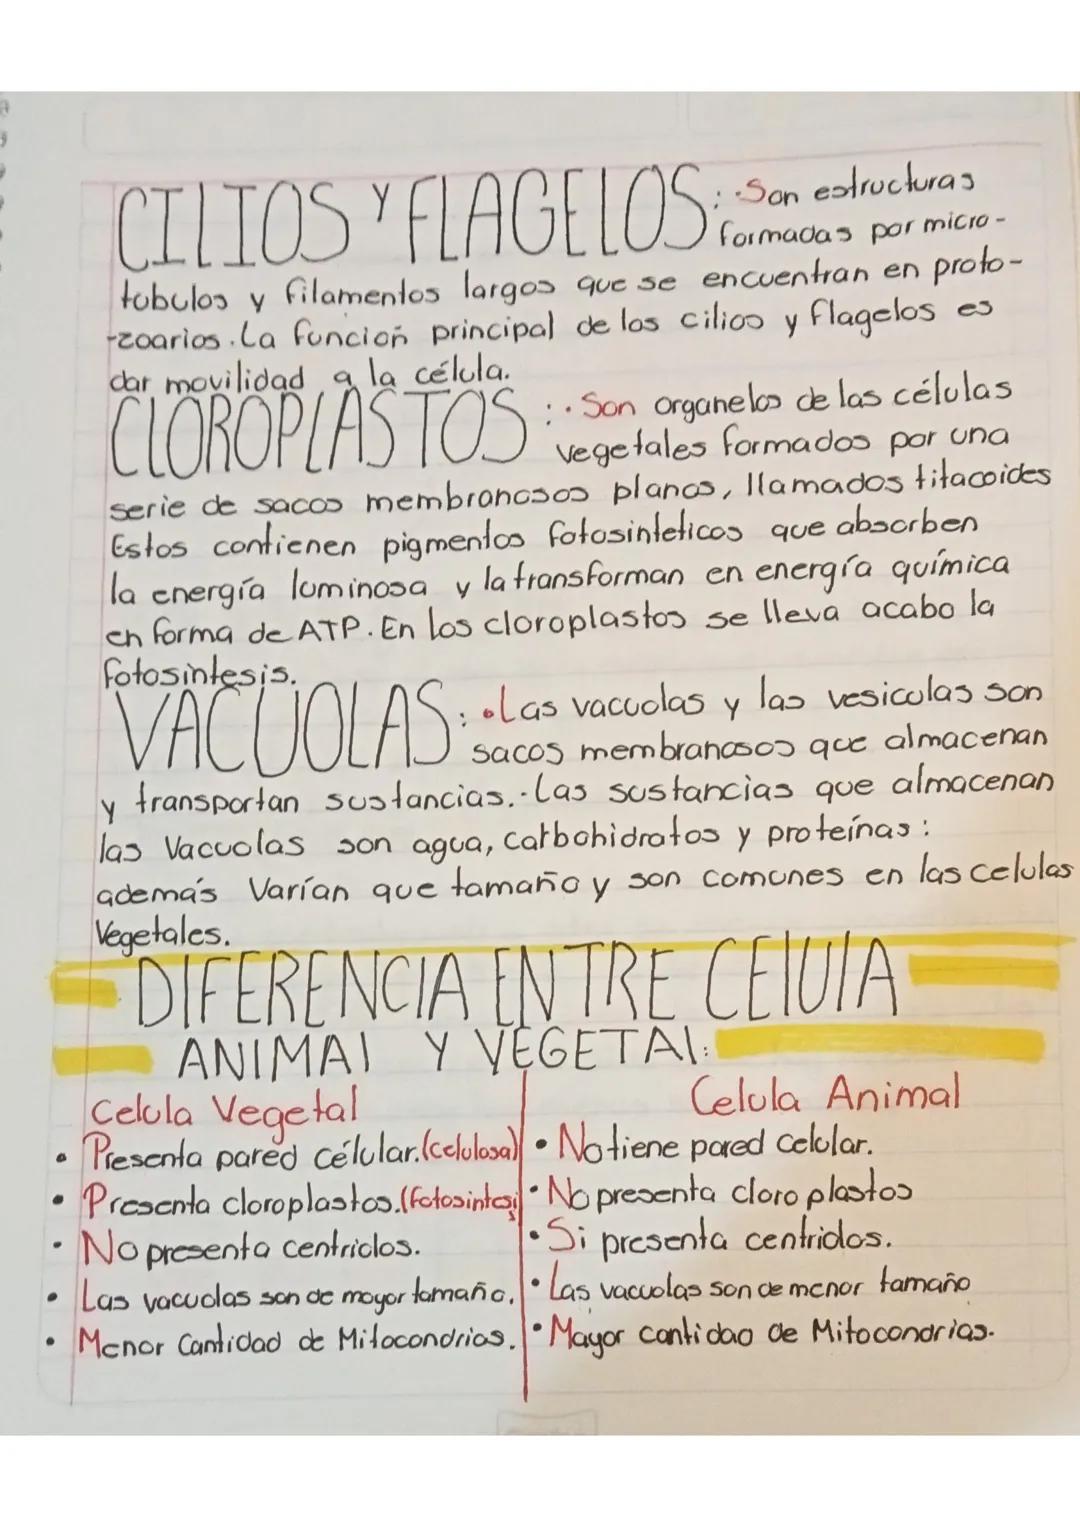 CILIOS Y FLAGELOS: ·Son estructuras
formadas por micro-
tubulos y filamentos largos que se encuentran en proto-
-zoarios. La función principal de los cilios y flagelos es
dar movilidad a la célula.
CLOROPLASTOS: · Son organelos de las células
vegetales formados por una
serie de sacos membranosos planos, llamados tilacoides
Estos contienen pigmentos fotosinteticos que absorben
la energía luminosa y la transforman en energía química
en forma de ATP. En los cloroplastos se lleva acabo la
fotosintesis.
VACUOLAS: •Las vacuolas y las vesiculas son
sacos membranosos que almacenan
y transportan sustancias.·Las sustancias que almacenan
las Vacuolas son agua, carbohidratos y proteínas:
además Varían que tamaño y son comunes en las celulas
Vegetales.
DIFERENCIA ENTRE CElUlA
ANIMAl Y VEGETAl:
Celula Vegetal
• Presenta pared célular.(celulosa)
• Presenta cloroplastos.(fotosintesis
• No presenta centriolos.
• Las vacuolas son de mayor tamaño.
• Menor Cantidad de Mitocondrias.
Celula Animal
• No tiene pared celular.
• No presenta cloroplastos
• Si presenta centriolos.
• Las vacuolas son de menor tamaño
• Mayor cantidad de Mitocondrias.